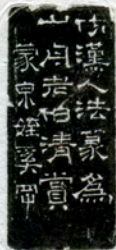 仿漢人法篆為
山舟老伯清賞
蒙泉姪奚岡